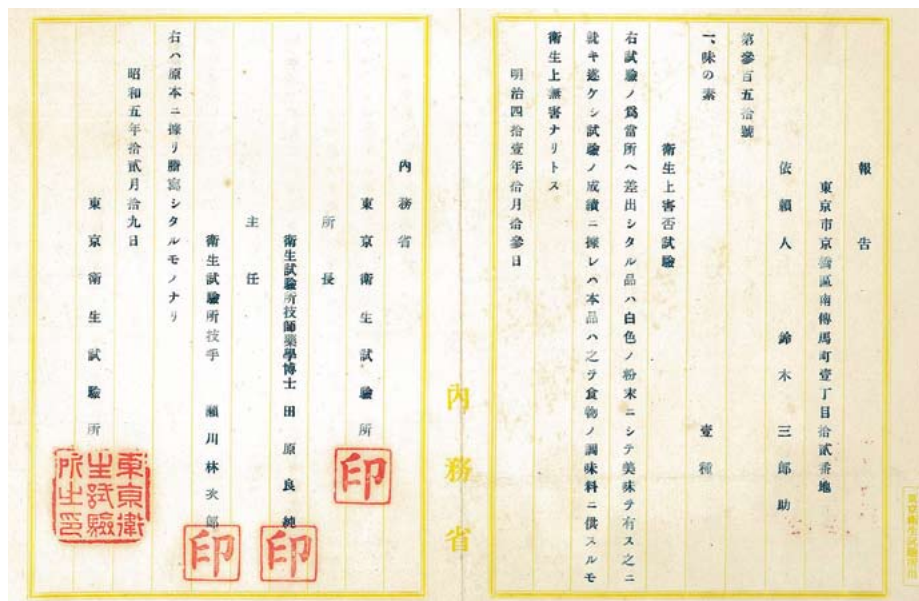 報告
東京市京橋區南傳馬町壹丁目拾貳番地
依賴人 鈴木三郎助
第參百五拾號
一、味の素 壹種
衛生上害否試驗
右試驗ノ爲當所ヘ差出シタル品ハ白色ノ粉末ニシテ美味ヲ有ス之ニ
就キ遂ケシ試驗ノ成績ニ據レハ本品ハ之ヲ食物ノ調味料ニ供スルモ
衛生上無害ナリトス
明治四拾壹年拾月拾參日
內務省
內務省
東京衛生試驗所
印
所長
衛生試驗所技師藥學博士 田原良純
印
主任
衛生試驗所技手 瀨川林次郎
印
右ハ原本ニ據リ謄寫シタルモノナリ
昭和五年拾貳月拾九日
東京衛生試驗所
東京衛生試驗所之印